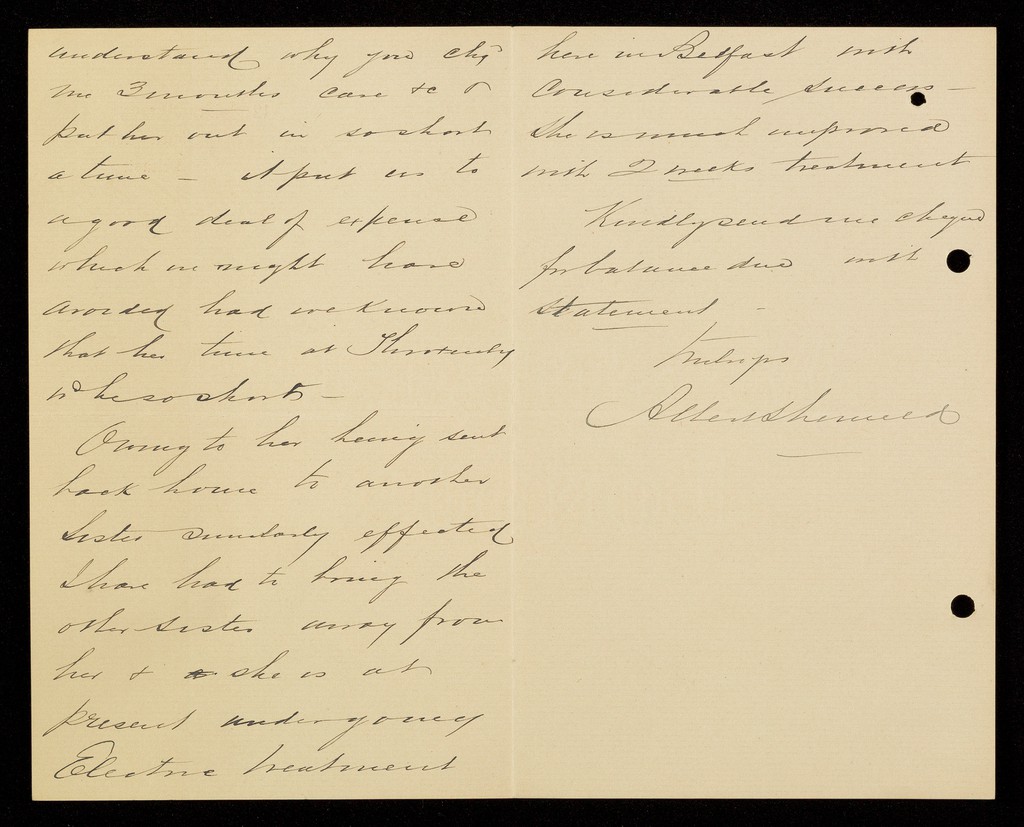 understand why you chg
me 3 months care &c &
put her out in so short
a time – it put us to
a good deal of expense
which we might have
avoided had we known
that her time at
be so short –
Owing to her being sent
back home to another
sister similarly effected
I have had to bring the
other sister away from
her & she is at
present undergoing
Electric treatment
here in Belfast with
Considerable success –
She is much improved
with 2 weeks treatment
Kindly send me cheque
for balance due with
statement –